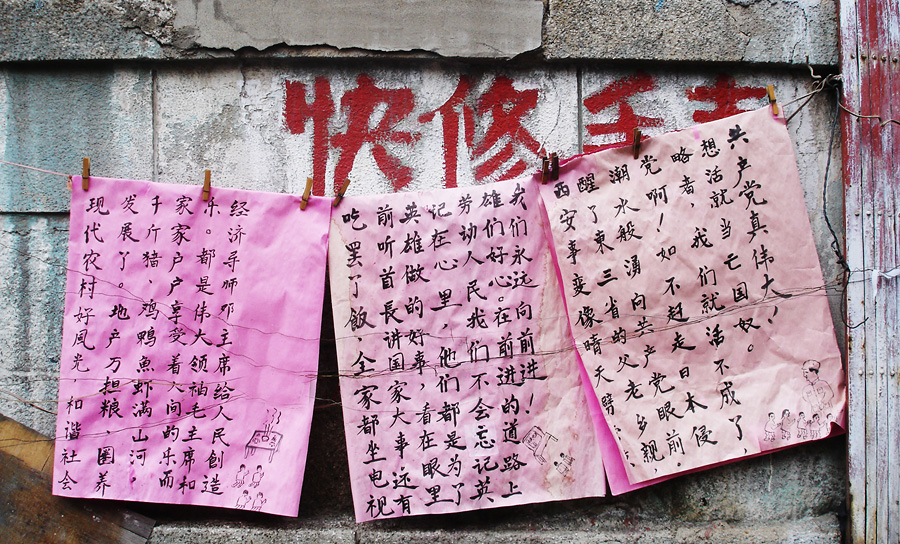 快修手表
现代农村好風光，和谐社会
发展了。地产万担粮、圈养
千斤猪，鸡鸭魚虾满山河，
家家户户享受着人间的乐而
乐。都是伟大领袖毛主席和
经济导师邓主席给人民创造
吃罢了饭，全家都坐电视
前听首長讲国家大事远有
英雄做的好事，看在眼里
记在心里，他们都是为了
劳动人民我们不会忘记英
雄们好心。在前进的道路上
我们永远向前进！
西安事变像晴天劈
醒了東三省的父老乡親，
潮水般湧向共产党眼前，
党啊！如不赶走日本侵
略者，我们就活不成了，
想活就当亡国奴。
共产党真伟大！